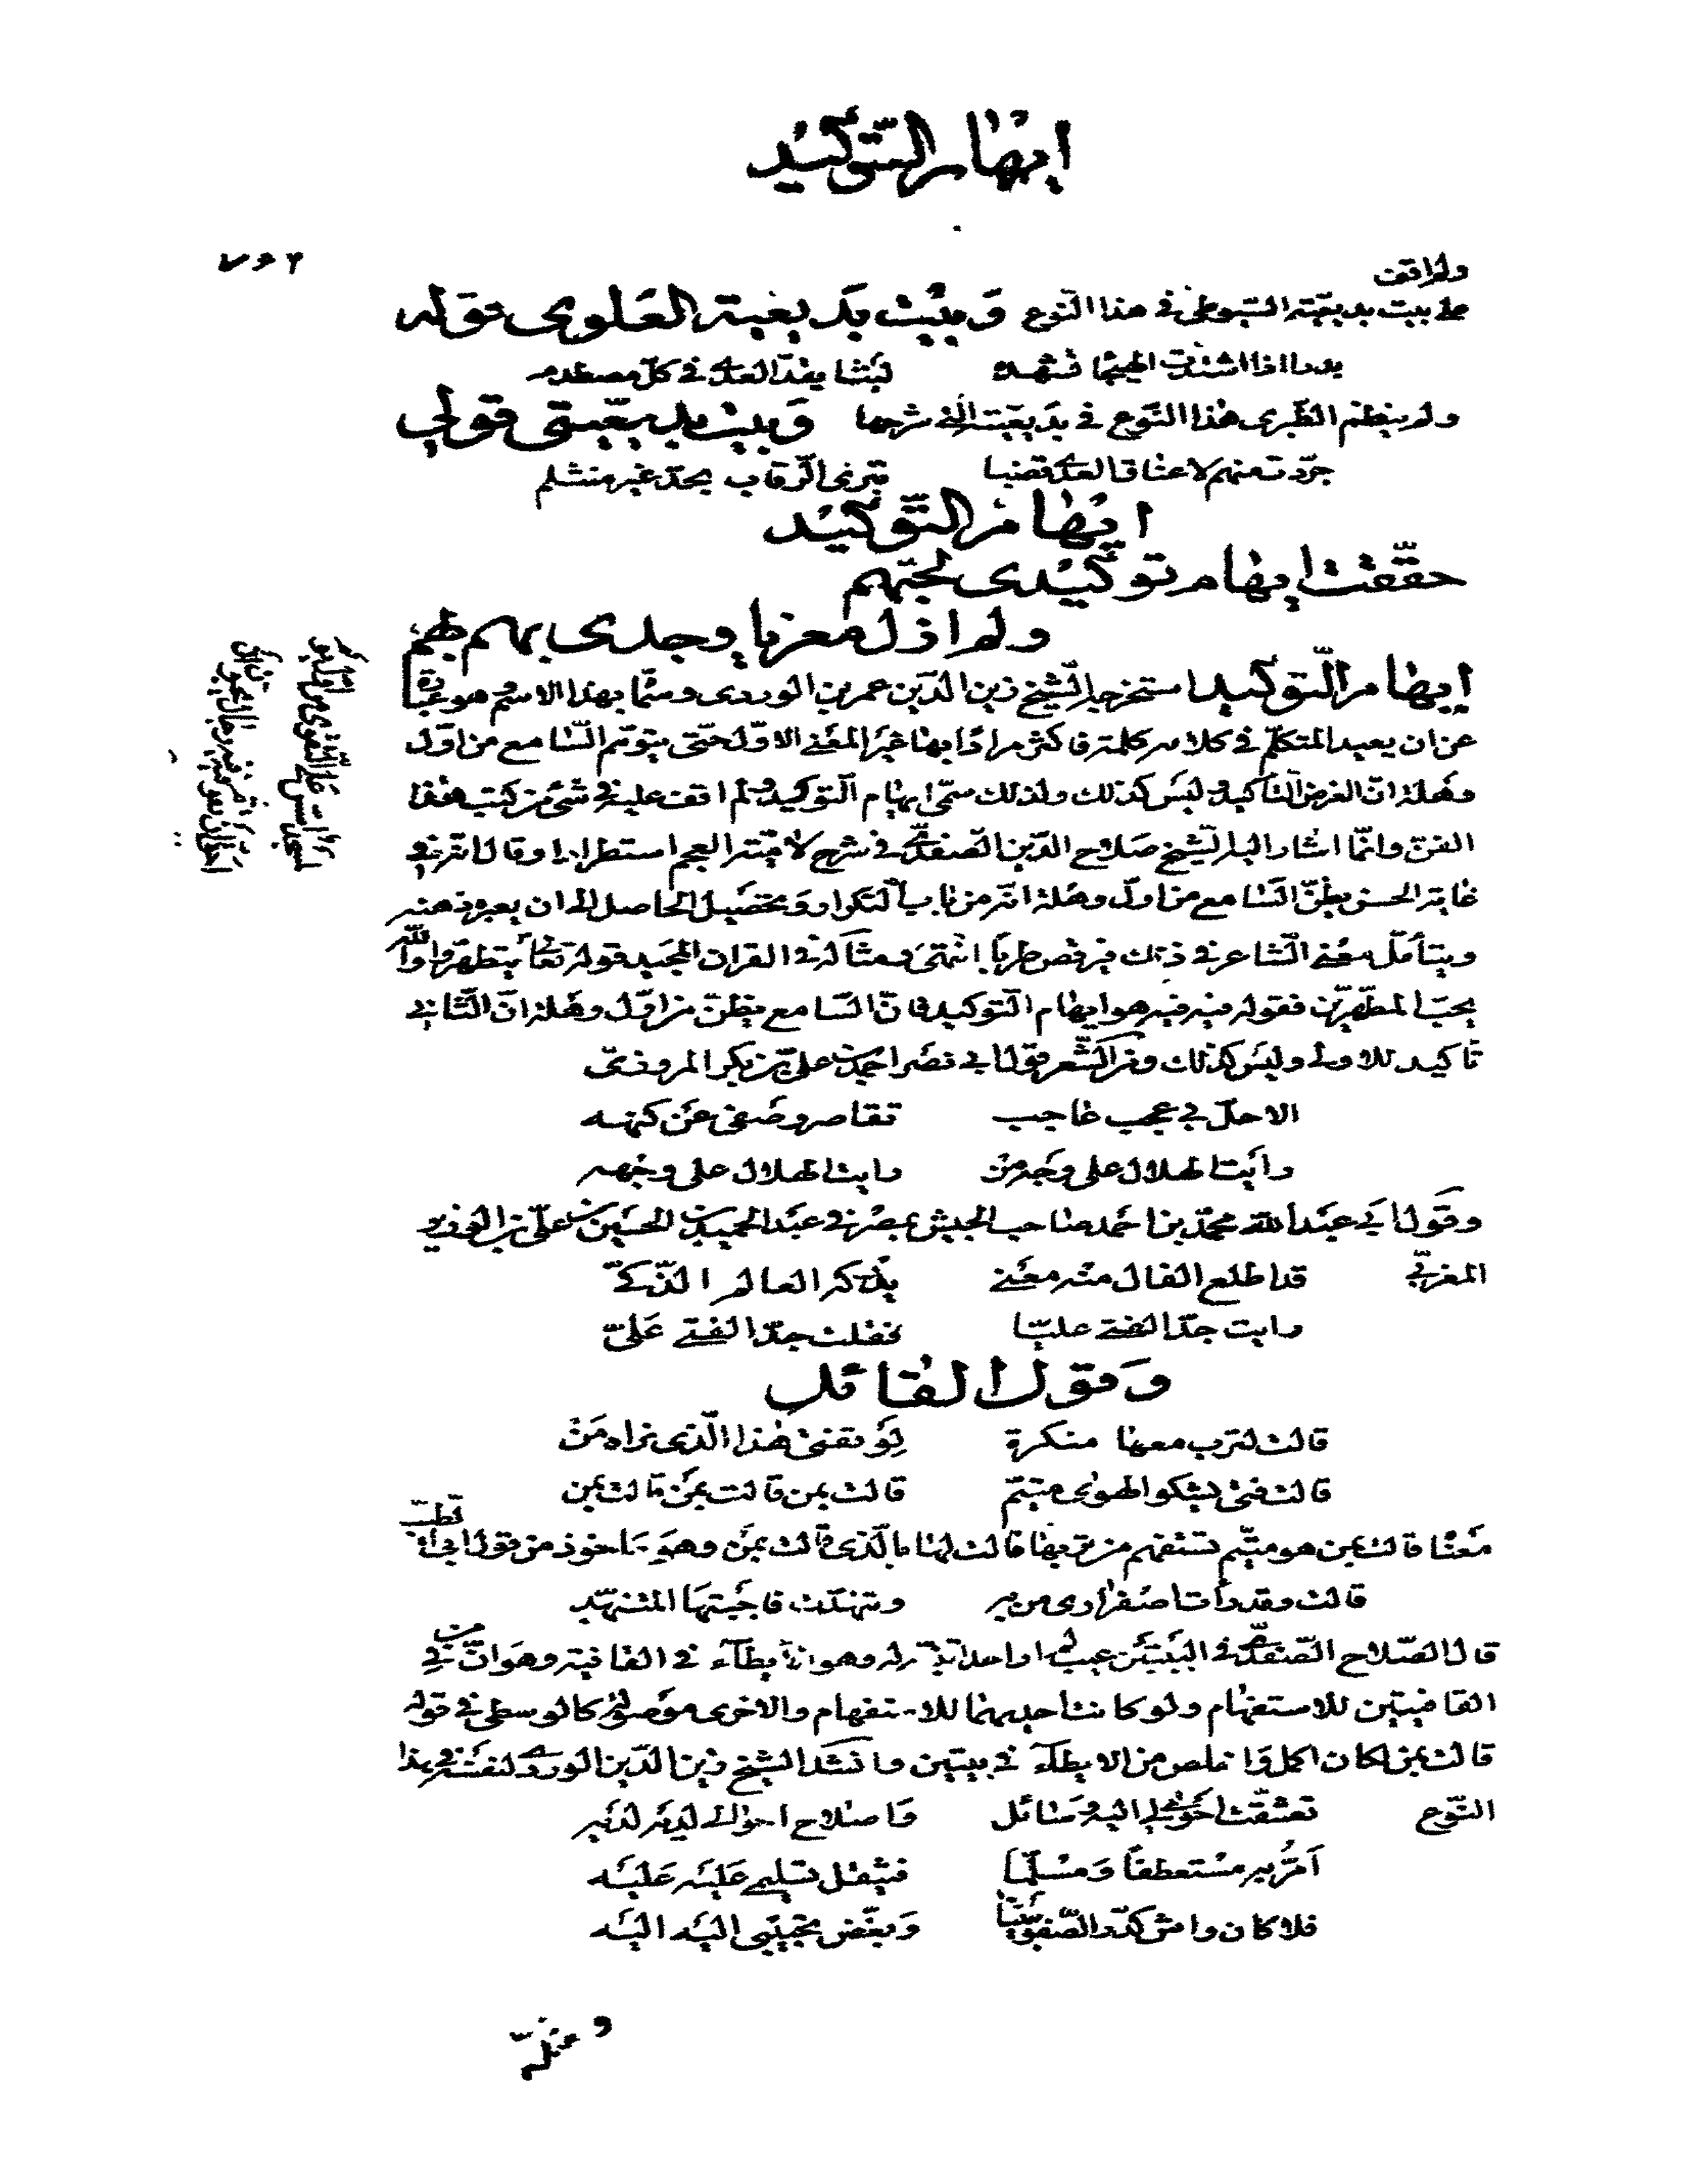 ايهام التوكيد
٧٦٢
ولم اقف
على بيت بديعيّة السّيوطى فى هذا النّوع وَبيْت بَديعيّة العَلوى قوله
بدرا اذا اشتدّت الهيجا فشهدة ليثا يقدّ العدى فى كلّ مصطدم
ولم ينظم الطّبرى هذا النّوع فى بَديعيّته الّتى شرحها وَبيت بديعيّتى قولي
جرّدت منهم لاعناق العدى قضبا تبرى الرّقاب بحدّ غير منثلم
ايْهام التّوكيْد
حقّقت ايهام توكيْدى لحبّهم
ولم ازل معزيا وجدى بهم بهم
ايهام التّوكيد استخرجه الشّيخ زين الدّين عمر بن الوردى وسمّا بهذا الاسم وهو عبارة
عن ان يعيد المتكلّم فى كلامه كلمة فاكثر مرادًا بها غيَر المعَنى الاوّل حتّى يتوهّم السّامع من اوّل
وهلة انّ الغرض التّاكيد وليَس كذلك ولذلك سمّى ايهام التّوكيد ولم اقف عليه فى شئ من كتب هذا
الفنّ وانّما اشار اليه الشّيخ صَلاح الدّين الصّفدىّ فى شرح لاميّة العجم استطرادا وقال انّه فى
غاية الحسن يظنّ السّامع من اول وهلة انّه من باب التكرار وَتحصَيل الحاصل الى ان يعيد ذهنه
ويتأمّل معْنى الشّاعر فى ذلك فيرقص طربًا انتهىَ ومثاله فى القران المجَيد قوله تعَالى يتطهّروا والله
يحبّ المطّهرّين فقوله فيه فيه هو ايهام التّوكيد فانّ السّامع يظنّ من اوّل وهَلة انّ الثّانى
تاكيد للاولى وليَس كذلك ومن الشّعر قول ابى نصَر احمد بن علىّ بن بكر المروذىّ
الاحلّ بى عجب عاجب تقاصر وصَفى عَن كنهه
رايَت الهلال على وجَه من رايت الهلال على وجْهه
وقوَل ابى عبَد الله محمّد بن احَمد صاحب الجيش بمصْر فى عبَد الحميد بن الحسَين بن علىّ بن الوزير
المغربّى قد اطلع الفال منْه معَنى يدْركه العالم الذّكىّ
رايت جدّ الفتى عليّا فقلت جدّ الفتى عَلىّ
وَقول القائل
قالت لترب معها منكرة لوَقفتى هذا الّذى نراه مَن
قالت فتى يشكو الهوى متيّم قالت بمن قالت بمَن قالت بمن
مَعنْا قالت بمن هو متيّم تستفهم من تربها قالت لها بالّذى قالت بمن وهوَ مَاخوذ من قول ابى الطّيّب
قالت وقد رأت اصْفرارى من به وتنهّدت فاجَبتها المتنهّد
قال الصّلاح الصّفدىّ فى البَيتيَن عيب واحد وهو الأيطآء فى القافية وهوَ انّ من فى
القافيتين للاستفهام ولو كانت احديهما للاستفهام والاخرى موَصولة كالوسطى فى قوله
قالت بمن لكان اكمل وَاخلص من الايطآء فى بيتين وانشد الشّيخ زين الدّين الوردى لنفسْه فى هذا
النّوع تعشّقْت احَوى لى اليه وَسَائل وَاصلاح احوالى لديَه لديَه
اَمرُّ به مسْتعطفاً وَمسْلّما فيثقل تسليمى عَليَه عَليَه
فلا كان واش كدّر الصّفو بيننا وَبغّض تحبيبى اليَه اليَه